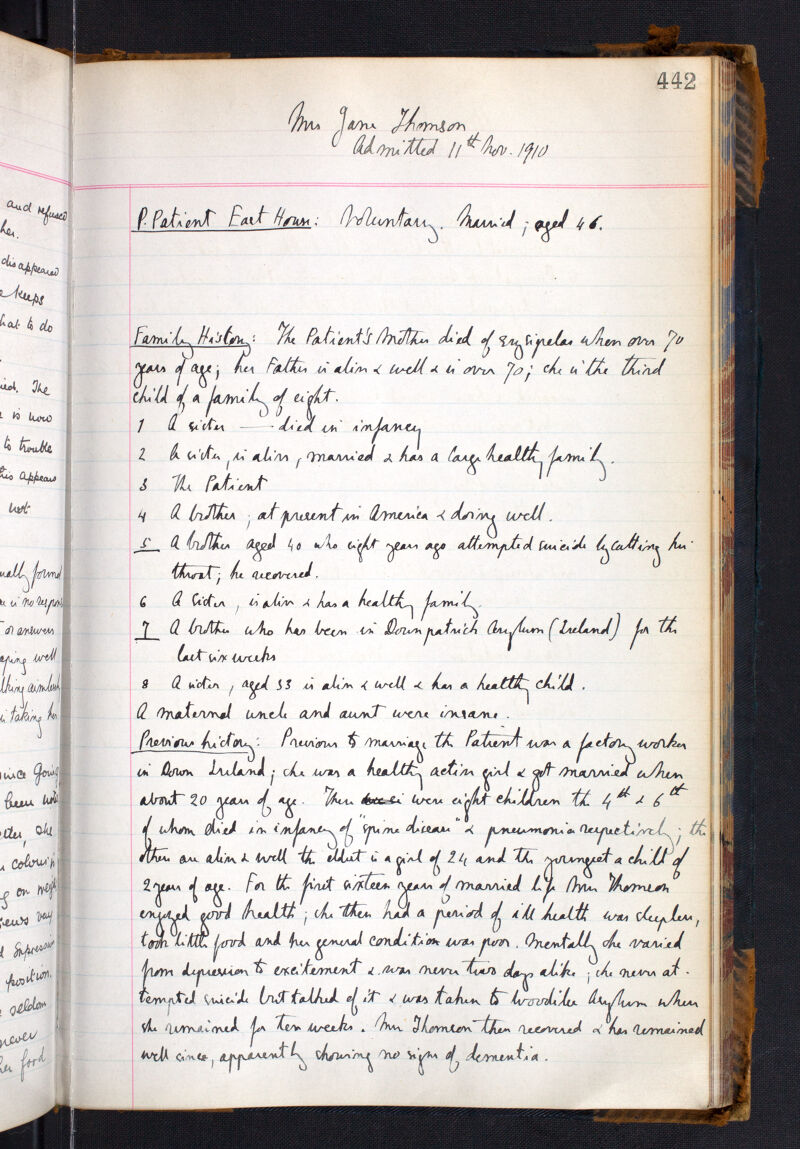 442
Mrs Jane Thomson
Admitted 11th Nov. 1910
P. Patient East House: Voluntary. Married; aged 46.
Family History: The Patient's Mother died of erysipelas when over 70
years of age; her Father is alive & well & is over 70; she is the third
child of a family of eight.
1 A sister — died in infancy
2 A sister, is alive, married & has a large healthy family.
3 The Patient
4 A brother, at present in America & doing well.
5 A brother aged 40 who eight years ago attempted suicide by cutting his
throat; he recovered.
6 A Sister, is alive & has a healthy family.
7 A brother who has been in Downpatrick Asylum (Ireland) for the
last six weeks
8 A sister, aged 33 is alive & well & has a healthy child.
A maternal uncle and aunt were insane.
Previous history: Previous to marriage the Patient was a factory worker
in Down Ireland; she was a healthy active girl & got married when
about 20 years of age. There were eight children the 4th & 6th
of whom died in infancy of "spine disease" & pneumonia respectively; the
others are alive & well the eldest is a girl of 24 and the youngest a child of
2 years of age. For the first sixteen years of married life Mrs Thomson
enjoyed good health; she then had a period of ill health was sleepless,
took little food and her general condition was poor. Mentally she varied
from depression to excitement & was never two days alike; she never at-
tempted suicide but talked of it & was taken to Woodilee Asylum where
she remained for ten weeks. Mrs Thomson then recovered & has remained
well since, apparently showing no signs of dementia.
and refused
her.
disappeared
keeps
what to do
The
is now
to trouble
This appears
not
formed
is no
or answers
well
aimlessly
taking her
since going
been
she
on
very
position.
seldom
never
her food